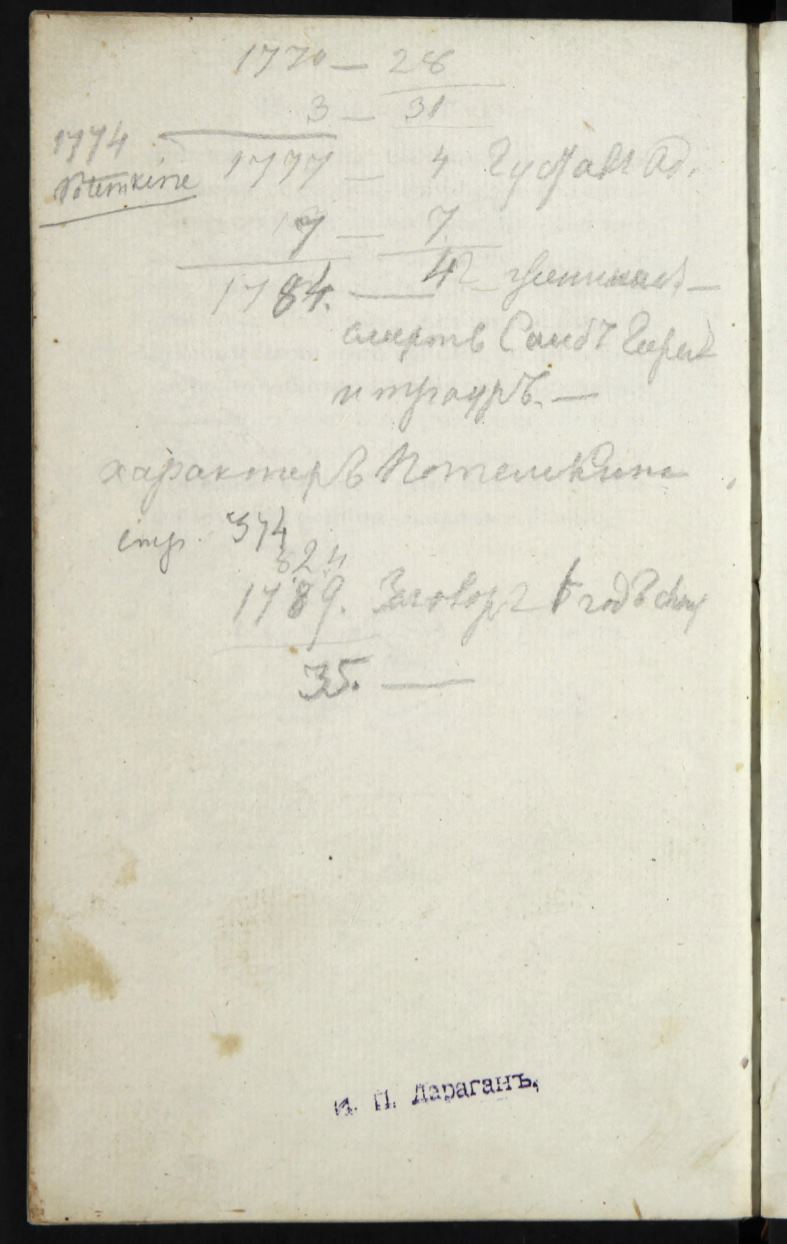 1770 — 28
3 — 31
1774
Potemkine
1777 — 4 Густавъ Ад.
7 — 7
1784. — 42
смерть
и трауръ. —
характеръ Потемкина
стр. 374
324
1789. Заговоръ годъ
35. —
И. П. Дараганъ,